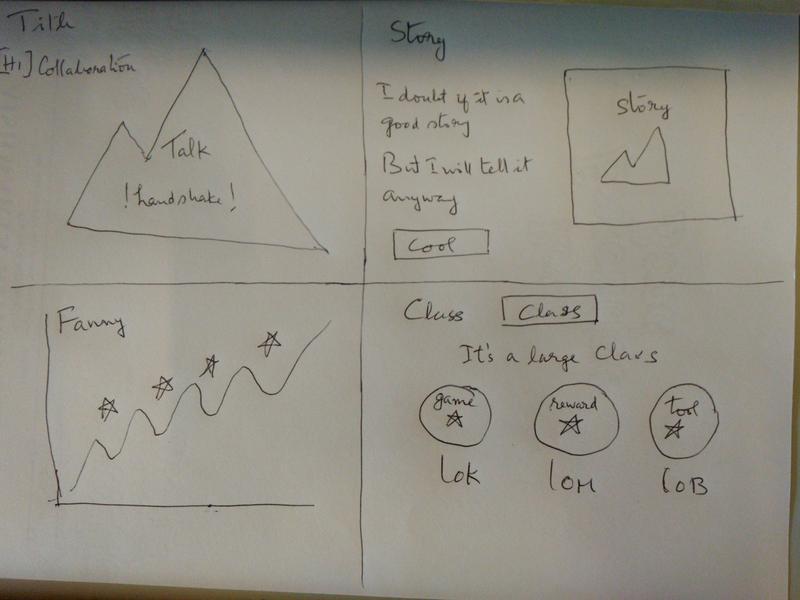 Title
[H1] Collaboration
Talk
! handshake !
Story
I doubt if it is a
good story
But I will tell it
anyway
Cool
Story
Fanny
Class
Class
It's a large Class
game
reward
tool
10K
10M
10B